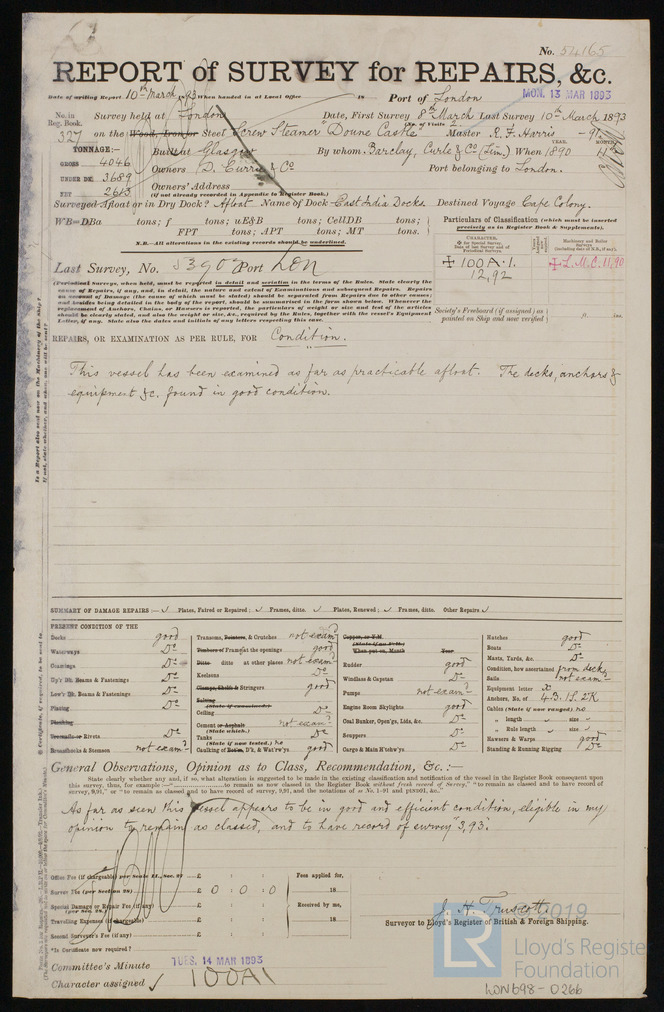 No. 54165
REPORT of SURVEY for REPAIRS, &c.
Date of writing Report 10th March 1893 When handed in at Local Office 18 Port of London
MON. 13 MAR 1893
No. in Reg. Book. Survey held at London Date, First Survey 8th March Last Survey 10th March 1893
(No. of Visits 2)
327 on the Wood, Iron or Steel Screw Steamer "Doune Castle" Master R. F. Harris - 91
TONNAGE:— Built at Glasgow By whom Barclay, Curle & Co (Lim.) When 1890 11
YEAR. MONTH.
GROSS 4046 Owners D. Currie & Co Port belonging to London.
UNDER DK. 3689 Owners' Address
(if not already recorded in Appendix to Register Book.)
NET 2613
Surveyed Afloat or in Dry Dock? Afloat Name of Dock East India Docks Destined Voyage Cape Colony.
WB=DBa tons; f tons; uE&B tons; CellDB tons;
FPT tons; APT tons; MT tons.
N.B.—All alterations in the existing records should be underlined.
Particulars of Classification (which must be inserted precisely as in Register Book & Supplements).
CHARACTER,
Machinery and Boiler Surveys
Last Survey, No. 53902 Port Lon
100A.1. L.M.C. 11,90
12,92
(Periodical Surveys, when held, must be reported in detail and seriatim in the terms of the Rules. State clearly the
cause of Repairs, if any, and, in detail, the nature and extent of Examinations and subsequent Repairs. Repairs
on account of Damage (the cause of which must be stated) should be separated from Repairs due to other causes;
and besides being detailed in the body of the report, should be summarized in the form shown below. Whenever the
replacement of Anchors, Chains, or Hawsers is reported, the particulars of weight or size and test of the articles
should be clearly stated, and also the weight or size, &c., required by the Rules, together with the vessel's Equipment
Letter, if any. State also the dates and initials of any letters respecting this case.
Society's Freeboard (if assigned) as painted on Ship and now verified
REPAIRS, OR EXAMINATION AS PER RULE, FOR Condition.
This vessel has been examined as far as practicable afloat. The decks, anchors &
equipment &c. found in good condition.
SUMMARY OF DAMAGE REPAIRS:— Plates, Faired or Repaired; Frames, ditto. Plates, Renewed; Frames, ditto. Other Repairs
PRESENT CONDITION OF THE
Decks good
Waterways Do
Coamings Do
Up'r Dk. Beams & Fastenings Do
Low'r Dk. Beams & Fastenings Do
Plating Do
Planking
Treenails or Rivets Do
Breasthooks & Stemson not exam?
Transoms, Pointers, & Crutches not exam?
Timbers or Frames at the openings good
Ditto ditto at other places not exam?
Keelsons Do
Clamps, Shelfs & Stringers good
Salting
(State if examined.)
Ceiling Do
Cement or Asphalt not exam?
(State which.)
Tanks Do
(State if now tested.) no
Caulking of Bottom, D'k, & Wat'rw'ys good
Copper, or Y.M.
(State if on Felt.)
When put on, Month Year
Rudder good
Windlass & Capstan Do
Pumps not exam?
Engine Room Skylights good
Coal Bunker, Open'gs, Lids, &c. Do
Scuppers Do
Cargo & Main H'tchw'ys Do
Hatches good
Boats Do
Masts, Yards, &c. Do
Condition, how ascertained from deck
Sails not exam?
Equipment letter X
Anchors, No. of 4B. 1S. 2K
Cables (State if now ranged) no
" length size
" Rule length size
Hawsers & Warps good
Standing & Running Rigging Do
General Observations, Opinion as to Class, Recommendation, &c.:—
State clearly whether any and, if so, what alteration is suggested to be made in the existing classification and notification of the vessel in the Register Book consequent upon
this survey, thus, for example:—"to remain as now classed in the Register Book without fresh record of Survey," "to remain as classed and to have record of
survey, 9,91," or "to remain as classed and to have record of survey, 9,91, and the notations of ss No. 1-91 and pt ND91, &c."
As far as seen this vessel appears to be in good and efficient condition, eligible in my
opinion to remain as classed, and to have record of survey "3,93".
Office Fee (if chargeable) per Scale £ : : Fees applied for,
Survey Fee (per Section 28) £ 0 : 0 : 0 18
Special Damage or Repair Fee (if any) £ : : Received by me,
(per Sec. 28.)
Travelling Expenses (if chargeable) £ : : 18
Second Surveyor's Fee (if any) £ : :
J. H. Truscott
Surveyor to Lloyd's Register of British & Foreign Shipping.
*Is Certificate now required?
Committee's Minute TUES. 14 MAR 1893
Character assigned 100A1
LR
2019
Lloyd's Register
Foundation
LON698-0266